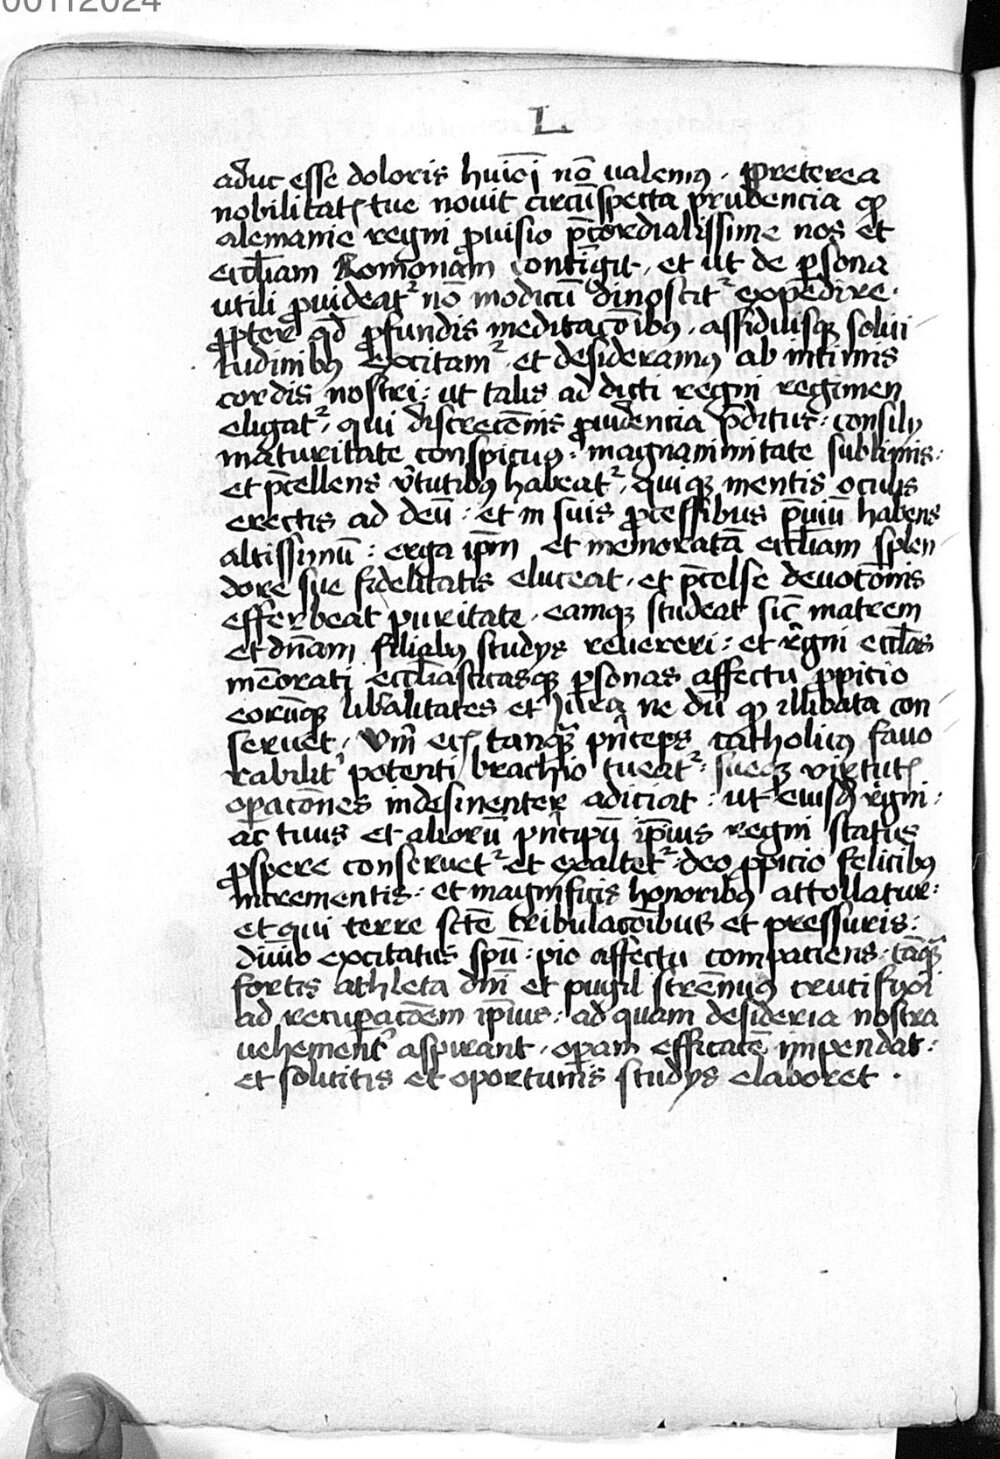 00112024
L
aduc esse doloris huiōi nō valemꝰ . Preterea
nobilitatꝭ tue novit circūspecta prudencia ꝙ
alemanie regni ꝓuisio p̄cordialissime nos et
eccl̄iam Romonam contīgit , et ut de ꝑsona
utili ꝓuideatᷣ nō modicū dinoscitᷣ expedire .
ꝓpter qd̄ ꝓfundis meditacōibꝫ . assiduisqꝫ solici
tudinibꝫ excitamᷣ . et desideramꝰ ab intimis
cordis nostri : ut talis ad dicti regni regimen
eligatᷣ , qui discrecōnis ꝓuidencia p̄ditus : consilij
maturitate conspicuꝰ . magnanimitate sublimis :
et p̄cellens v̾tutibꝫ habeatᷣ , quiqꝫ mentis oculis
erectis ad deū : et in suis ꝓcessibus p̄uiū habens
altissimū : erga ip̄m et memoratā eccl̄iam splen
dore sue fidelitatis eluceat , et p̄celse deuotōnis
efferbeat puritate . eamqꝫ studeat sic̄ matrem
et dn̄am filialibꝫ studys reuereri : et rˀgni eccl̄as
mēorati eccl̄iasticasqꝫ ꝑsonas affectu ꝓpicio
eorūqꝫ lib̾alitates et iura ne dū ꝙ illibata con
seruet , Vm̄ eciꝭ tanqᷓ pn̄ceps catholicꝰ fauo
rabilit̾ potenti brachio tueatᷣ : sueqꝫ virtutꝭ
oꝑacōnes indesinenter adiciat : ut eiusd̄ rˀgni :
ac tuus et aliorū pn̄cipū ip̄ius regni status
ꝓspere conseruetᷣ et exaltetᷣ . deo ꝓpicio felicibꝫ
incrementis . et magnificis honoribꝫ attollatur :
et qui terre sctē tribulacōibus et pressuris :
diuīo excitatus spū : pio affectu compaciens . tāqᷓ
fortis athleta dn̄i et pugil strēnuꝰ crucifixi
ad recuꝑacōem ip̄ius : ad quam desideria nostra
vehement̾ aspirant . oꝑam efficacē impendat :
et solicitis et oportunis studys elaboret .